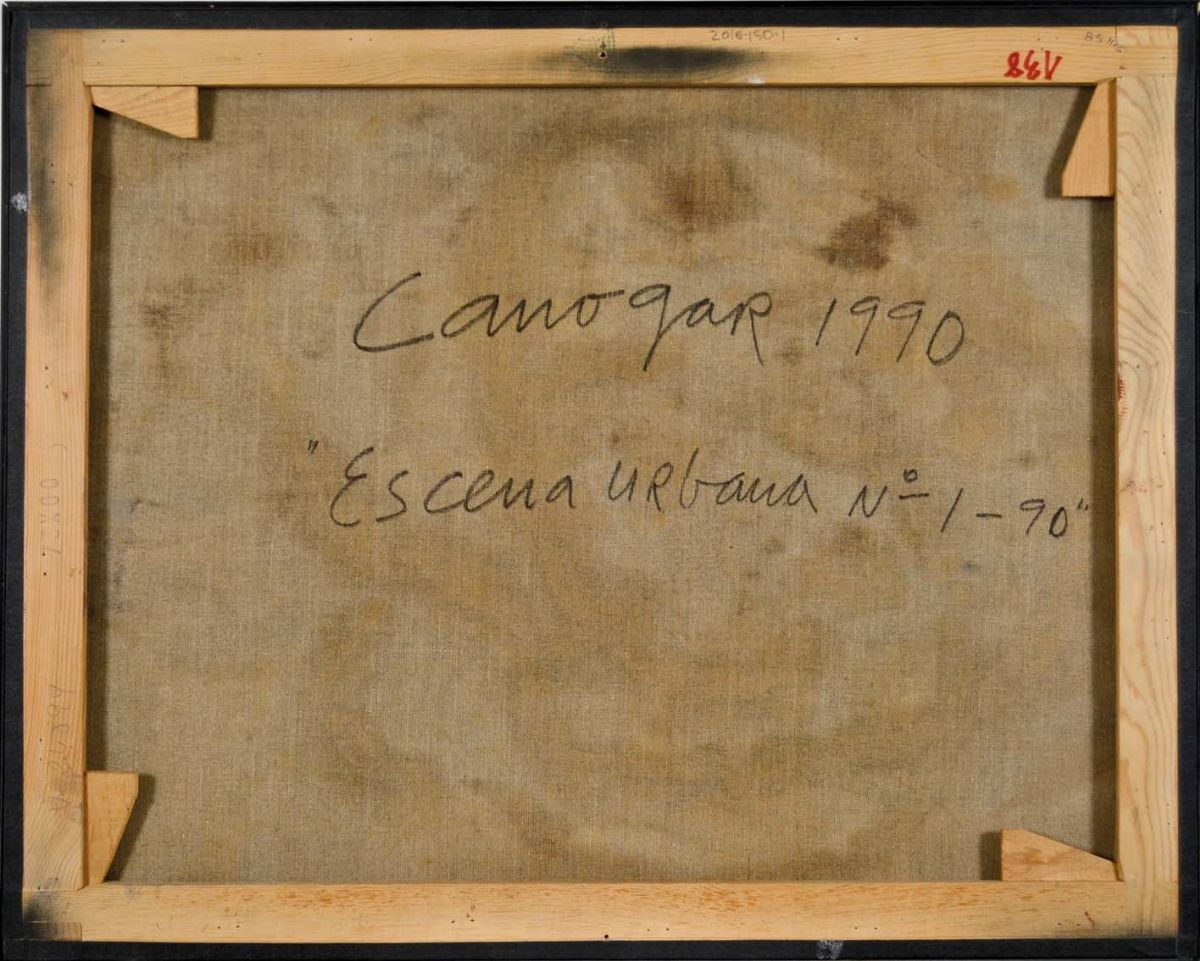 2016-150-1
Canogar 1990
"Escena urbana Nº 1-90"